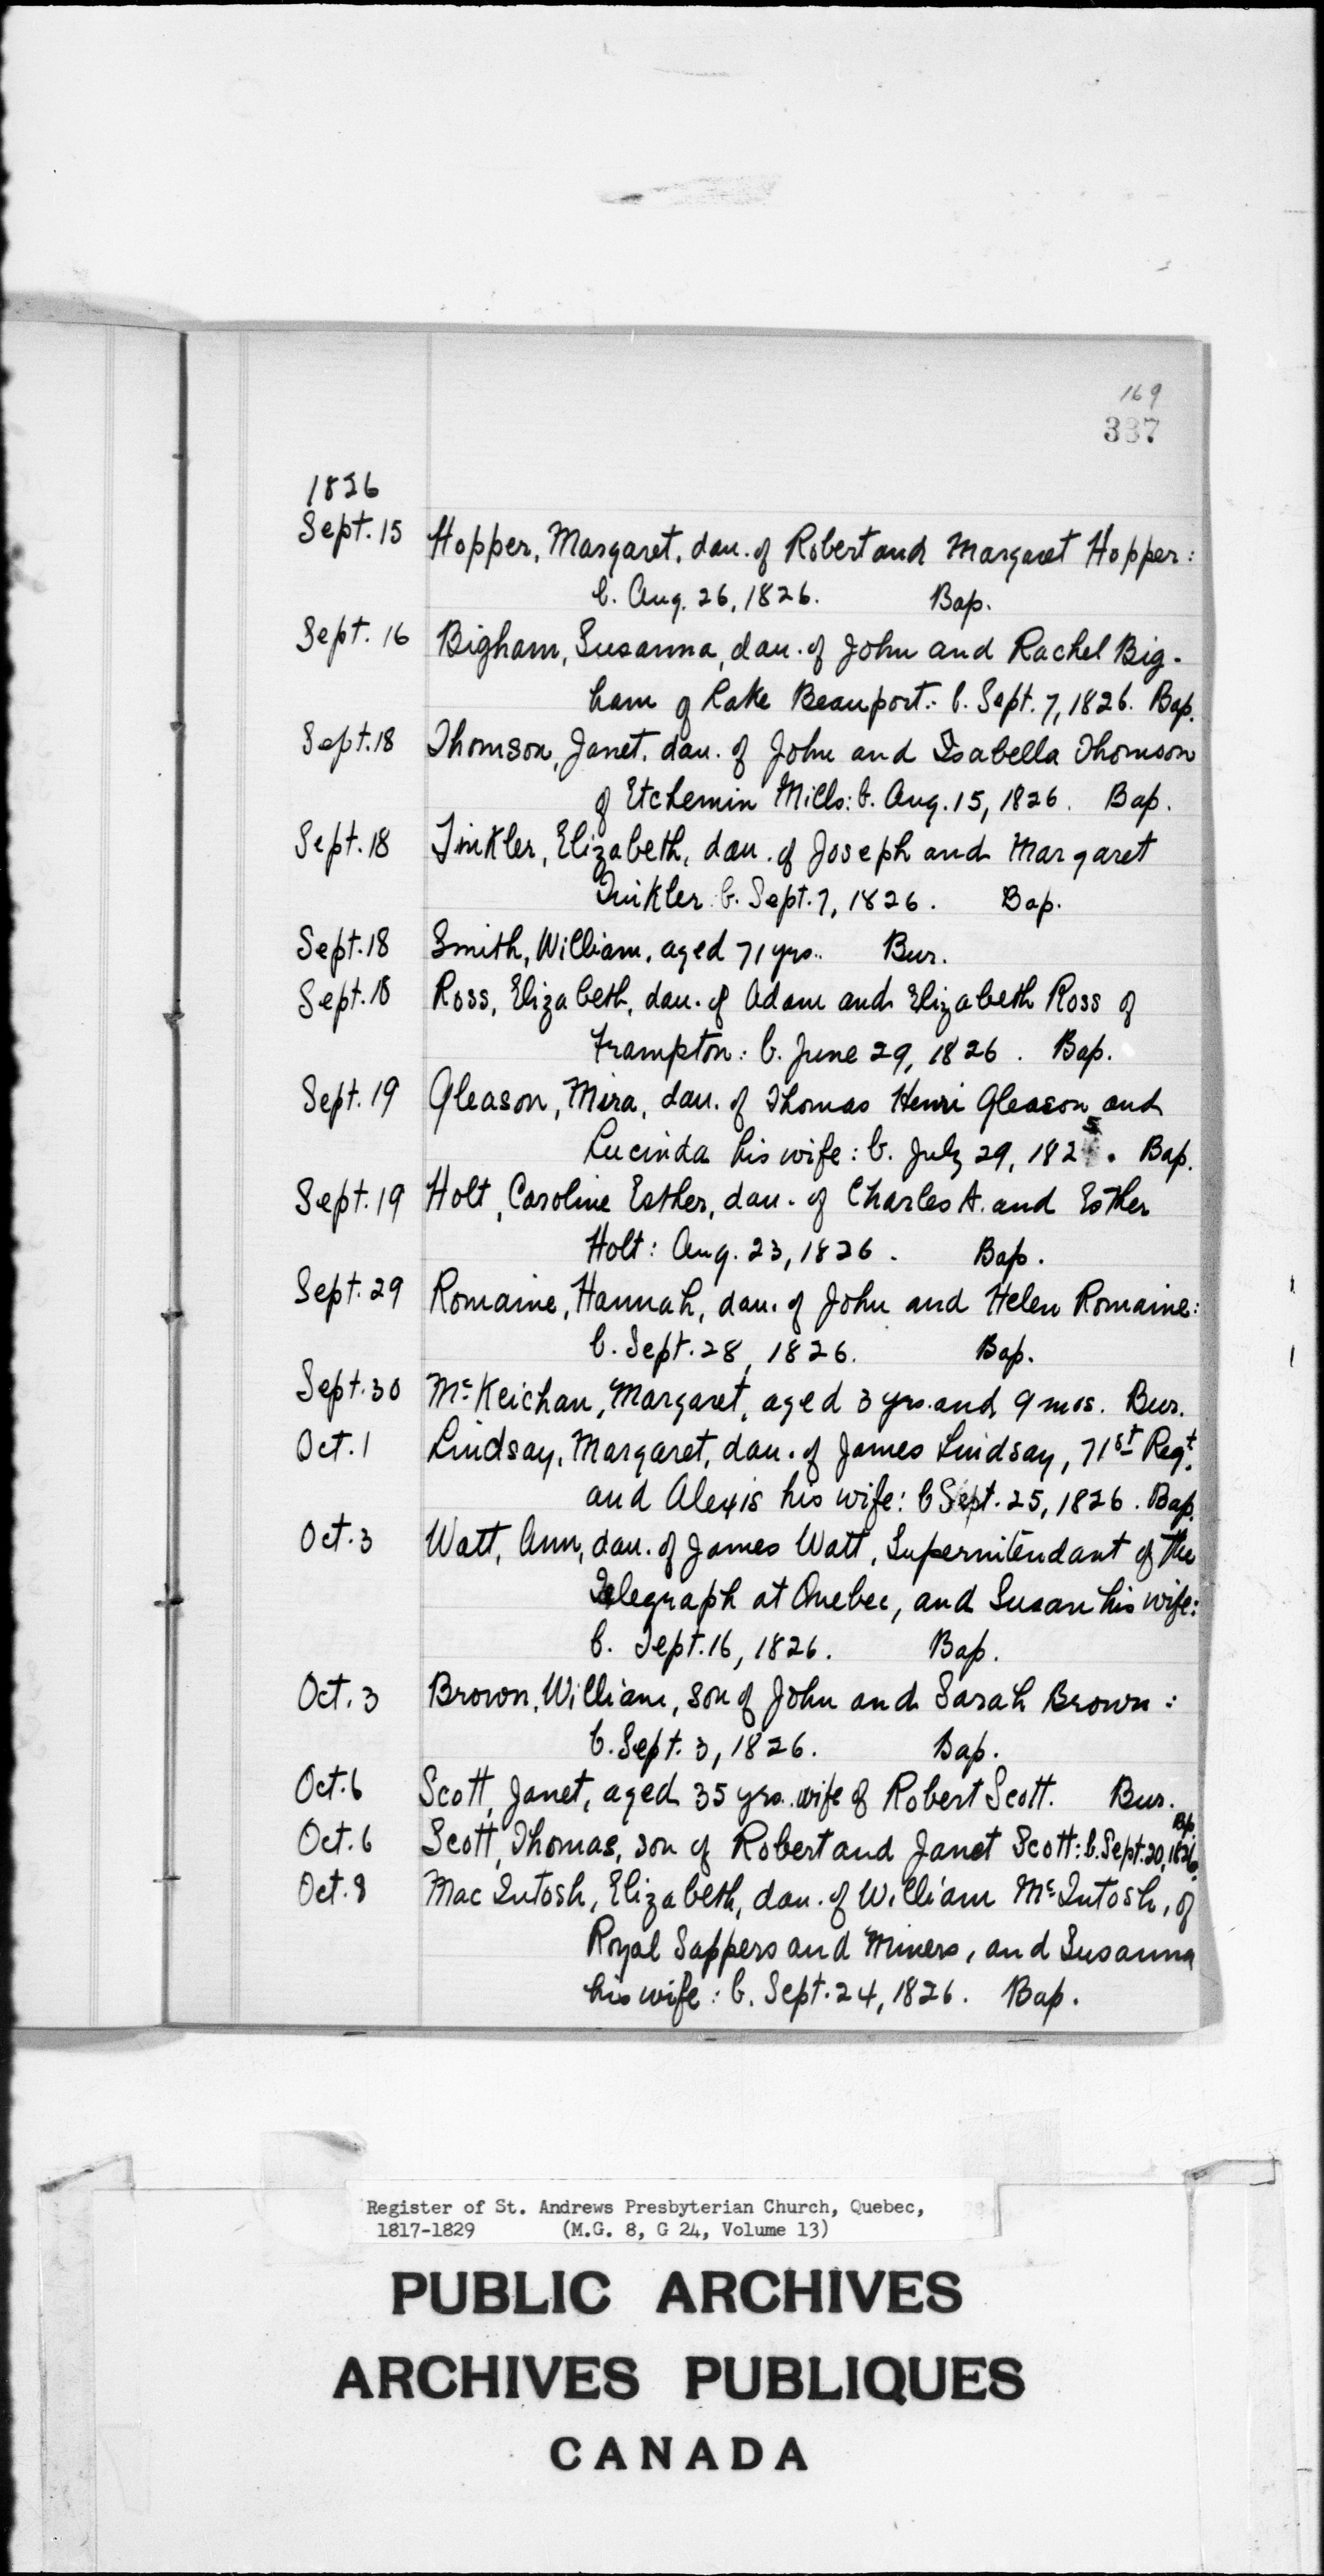 169
337
1826
Sept. 15 Hopper, Margaret, dau. of Robert and Margaret Hopper:
b. Aug. 26, 1826. Bap.
Sept. 16 Bigham, Susanna, dau. of John and Rachel Big-
ham of Lake Beauport: b. Sept. 7, 1826. Bap.
Sept. 18 Thomson, Janet, dau. of John and Isabella Thomson
of Etchemin Mills: b. Aug. 15, 1826. Bap.
Sept. 18 Tinkler, Elizabeth, dau. of Joseph and Margaret
Tinkler b. Sept. 7, 1826. Bap.
Sept. 18 Smith, William, aged 71 yrs. Bur.
Sept. 18 Ross, Elizabeth, dau. of Adam and Elizabeth Ross of
Frampton: b. June 29, 1826. Bap.
Sept. 19 Gleason, Mira, dau. of Thomas Henri Gleason and
Lucinda his wife: b. July 29, 1825. Bap.
Sept. 19 Holt, Caroline Esther, dau. of Charles A. and Esther
Holt: Aug. 23, 1826. Bap.
Sept. 29 Romaine, Hannah, dau. of John and Helen Romaine:
b. Sept. 28, 1826. Bap.
Sept. 30 McKeichan, Margaret, aged 3 yrs. and 9 mos. Bur.
Oct. 1 Lindsay, Margaret, dau. of James Lindsay, 71st Regt.
and Alexis his wife: b Sept. 25, 1826. Bap.
Oct. 3 Watt, Ann, dau. of James Watt, Supernitendant of the
Telegraph at Quebec, and Susan his wife:
b. Sept. 16, 1826. Bap.
Oct. 3 Brown, William, son of John and Sarah Brown:
b. Sept. 3, 1826. Bap.
Oct. 6 Scott, Janet, aged 35 yrs. wife of Robert Scott. Bur.
Oct. 6 Scott, Thomas, son of Robert and Janet Scott: b. Sept. 20, 1826. Bp
Oct. 8 MacIntosh, Elizabeth, dau. of William McIntosh, of
Royal Sappers and Miners, and Susanna
his wife: b. Sept. 24, 1826. Bap.
Register of St. Andrews Presbyterian Church, Quebec,
1817-1829 (M.G. 8, G 24, Volume 13)
PUBLIC ARCHIVES
ARCHIVES PUBLIQUES
CANADA